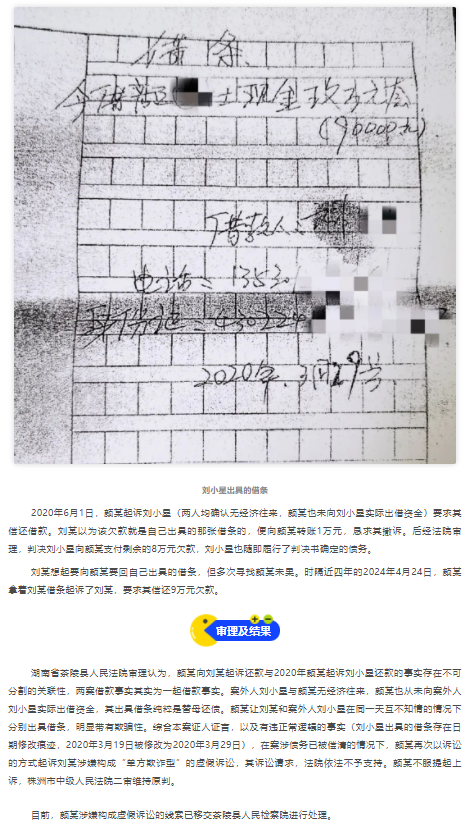 借条
今借 士现金玖万元整
(90000元)
借款人：
电话：13530
身份证：430224
2020年3月29号
刘小星出具的借条
2020年6月1日，颜某起诉刘小星（两人均确认无经济往来，颜某也未向刘小星实际出借资金）要求其
偿还借款。刘某以为该欠款就是自己出具的那张借条的，便向颜某转账1万元，恳求其撤诉。后经法院审
理，判决刘小星向颜某支付剩余的8万元欠款，刘小星也随即履行了判决书确定的债务。
刘某想起要向颜某要回自己出具的借条，但多次寻找颜某未果。时隔近四年的2024年4月24日，颜某
拿着刘某借条起诉了刘某，要求其偿还9万元欠款。
审理及结果
湖南省茶陵县人民法院审理认为，颜某向刘某起诉还款与2020年颜某起诉刘小星还款的事实存在不可
分割的关联性，两案借款事实其实为一起借款事实。案外人刘小星与颜某无经济往来，颜某也从未向案外人
刘小星实际出借资金，其出具借条纯粹是替母还债。颜某让刘某和案外人刘小星在同一天互不知情的情况下
分别出具借条，明显带有欺骗性。综合本案证人证言，以及有违正常逻辑的事实（刘小星出具的借条存在日
期修改痕迹，2020年3月19日被修改为2020年3月29日），在案涉债务已被偿清的情况下，颜某再次以诉讼
的方式起诉刘某涉嫌构成“单方欺诈型”的虚假诉讼，其诉讼请求，法院依法不予支持。颜某不服提起上
诉，株洲市中级人民法院二审维持原判。
目前，颜某涉嫌构成虚假诉讼的线索已移交茶陵县人民检察院进行处理。